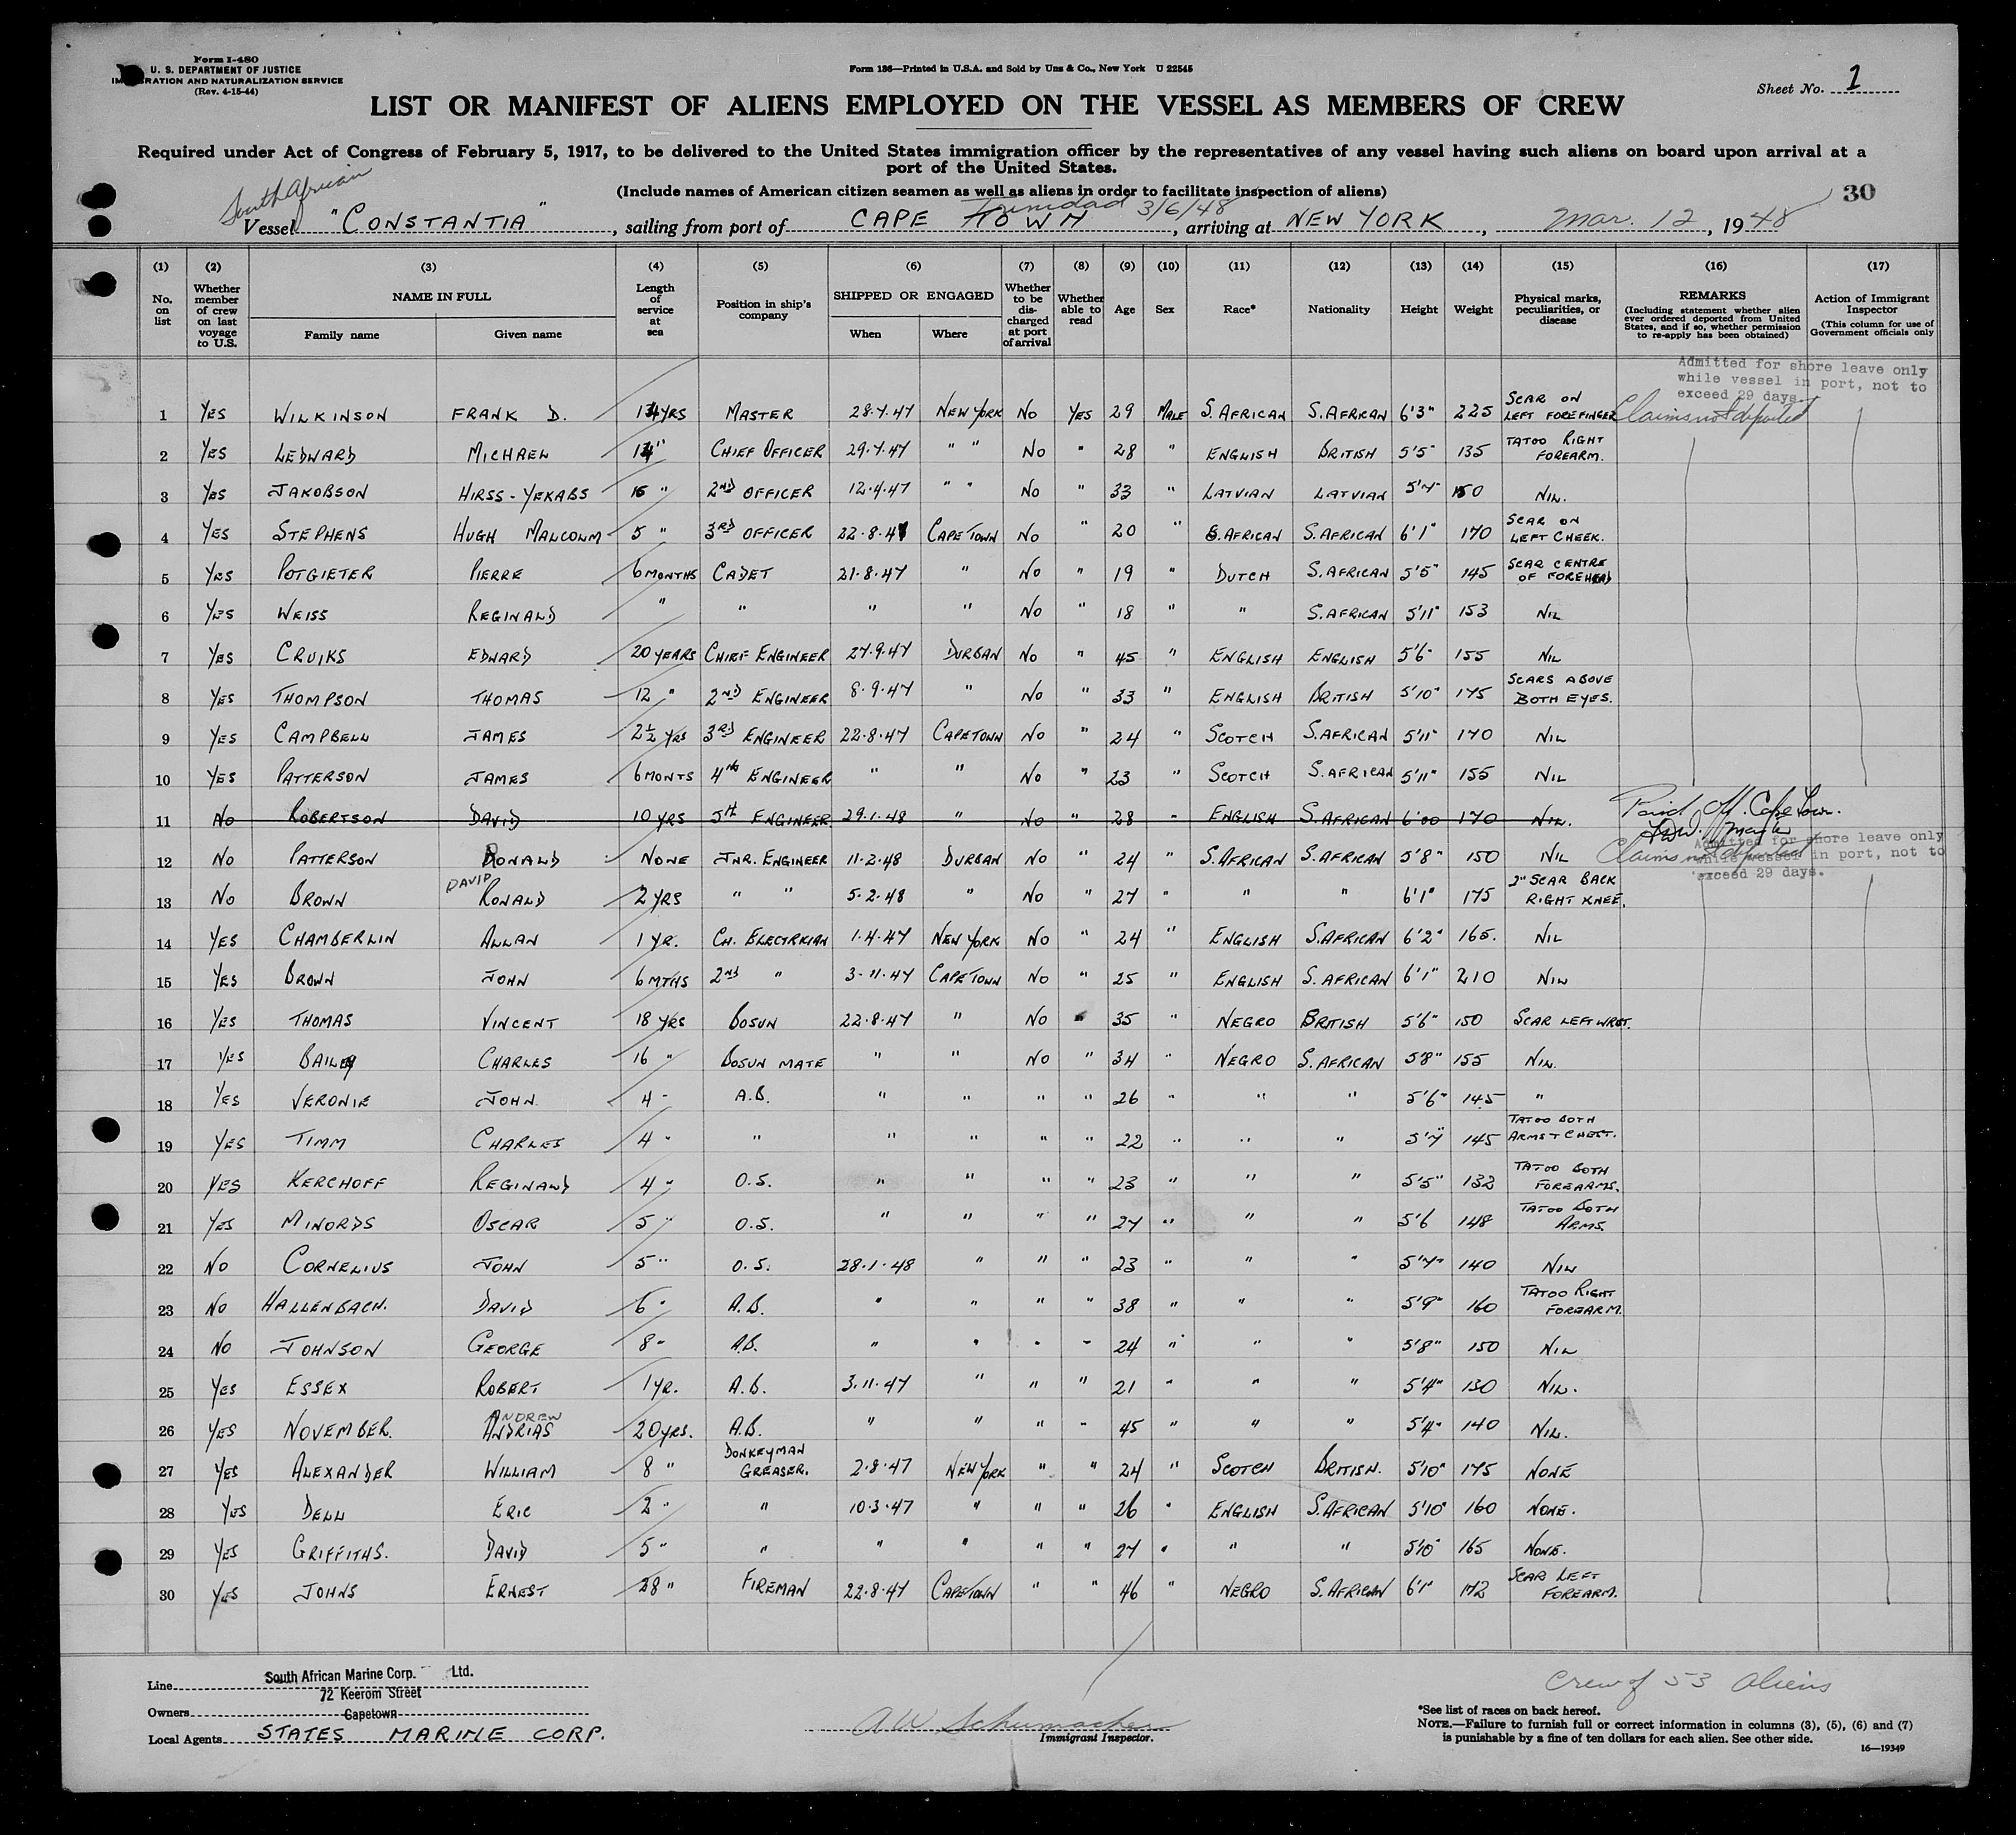 Form I-480
U. S. DEPARTMENT OF JUSTICE
IMMIGRATION AND NATURALIZATION SERVICE
(Rev. 4-15-44)
Form 136—Printed in U.S.A. and Sold by Unz & Co., New York U 22545
Sheet No. 1
LIST OR MANIFEST OF ALIENS EMPLOYED ON THE VESSEL AS MEMBERS OF CREW
Required under Act of Congress of February 5, 1917, to be delivered to the United States immigration officer by the representatives of any vessel having such aliens on board upon arrival at a
port of the United States.
(Include names of American citizen seamen as well as aliens in order to facilitate inspection of aliens)
30
South African
Trinidad 3/6/48
Vessel "CONSTANTIA", sailing from port of CAPE TOWN, arriving at NEW YORK, Mar. 12, 1948
(1) (2) (3) (4) (5) (6) (7) (8) (9) (10) (11) (12) (13) (14) (15) (16) (17)
No. on list
Whether member of crew on last voyage to U.S.
NAME IN FULL
Family name Given name
Length of service at sea
Position in ship's company
SHIPPED OR ENGAGED
When Where
Whether to be discharged at port of arrival
Whether able to read
Age
Sex
Race*
Nationality
Height
Weight
Physical marks, peculiarities, or disease
REMARKS
(Including statement whether alien ever ordered deported from United States, and if so, whether permission to re-apply has been obtained)
Action of Immigrant Inspector
(This column for use of Government officials only
Admitted for shore leave only
while vessel in port, not to
exceed 29 days.
1 YES WILKINSON FRANK D. YRS MASTER 28.7.47 NEW YORK NO YES 29 MALE S. AFRICAN S. AFRICAN 6'3" 225 SCAR ON LEFT FOREFINGER Claims not deported
2 YES LEDWARD MICHAEL " CHIEF OFFICER 29.7.47 " " NO " 28 " ENGLISH BRITISH 5'5" 135 TATOO RIGHT FOREARM.
3 YES JAKOBSON HIRSS-YEKABS 15 " 2ND OFFICER 12.4.47 " " NO " 33 " LATVIAN LATVIAN 5'7" 150 NIL.
4 YES STEPHENS HUGH MALCOLM 5 " 3RD OFFICER 22.8.47 CAPE TOWN NO " 20 " S. AFRICAN S. AFRICAN 6'1" 170 SCAR ON LEFT CHEEK.
5 YES POTGIETER PIERRE 6 MONTHS CADET 21.8.47 " NO " 19 " DUTCH S. AFRICAN 5'5" 145 SCAR CENTRE OF FOREHEAD
6 YES WEISS REGINALD " " " " NO " 18 " " S. AFRICAN 5'11" 153 NIL
7 YES CRUIKS EDWARD 20 YEARS CHIEF ENGINEER 27.9.47 DURBAN NO " 45 " ENGLISH ENGLISH 5'6" 155 NIL
8 YES THOMPSON THOMAS 12 " 2ND ENGINEER 8.9.47 " NO " 33 " ENGLISH BRITISH 5'10" 175 SCARS ABOVE BOTH EYES.
9 YES CAMPBELL JAMES 2½ YRS 3RD ENGINEER 22.8.47 CAPETOWN NO " 24 " SCOTCH S. AFRICAN 5'11" 170 NIL
10 YES PATTERSON JAMES 6 MONTS 4TH ENGINEER " " NO " 23 " SCOTCH S. AFRICAN 5'11" 155 NIL
11 NO ROBERTSON DAVID 10 YRS 5TH ENGINEER 29.1.48 " NO " 28 " ENGLISH S. AFRICAN 6'00 170 NIL. Paid off Cape Town.
12 NO PATTERSON RONALD NONE JNR. ENGINEER 11.2.48 DURBAN NO " 24 " S. AFRICAN S. AFRICAN 5'8" 150 NIL Claims not deported
Admitted for shore leave only
while vessel in port, not to
exceed 29 days.
13 NO BROWN DAVID RONALD 2 YRS " " 5.2.48 " NO " 27 " " " 6'1" 175 2" SCAR BACK RIGHT KNEE.
14 YES CHAMBERLIN ALLAN 1 YR. CH. ELECTRICIAN 1.4.47 NEW YORK NO " 24 " ENGLISH S. AFRICAN 6'2" 165. NIL
15 YES BROWN JOHN 6 MTHS 2ND " 3.11.47 CAPETOWN NO " 25 " ENGLISH S. AFRICAN 6'1" 210 NIL
16 YES THOMAS VINCENT 18 YRS BOSUN 22.8.47 " NO " 35 " NEGRO BRITISH 5'6" 150 SCAR LEFT WRIST.
17 YES BAILEY CHARLES 16 " BOSUN MATE " " NO " 34 " NEGRO S. AFRICAN 5'8" 155 NIL.
18 YES VERONIE JOHN 4 " A.B. " " " " 26 " " " 5'6" 145 "
19 YES TIMM CHARLES 4 " " " " " " 22 " " " 5'7" 145 TATOO BOTH ARMS + CHEST.
20 YES KERCHOFF REGINALD 4 " O.S. " " " " 23 " " " 5'5" 132 TATOO BOTH FOREARMS.
21 YES MINORDS OSCAR 5 " O.S. " " " " 27 " " " 5'6 148 TATOO BOTH ARMS.
22 NO CORNELIUS JOHN 5 " O.S. 28.1.48 " " " 23 " " " 5'7" 140 NIL
23 NO HALLENBACH. DAVID 6 " A.B. " " " " 38 " " " 5'9" 160 TATOO RIGHT FOREARM.
24 NO JOHNSON GEORGE 8 " A.B. " " " " 24 " " " 5'8" 150 NIL
25 YES ESSEX ROBERT 1 YR. A.B. 3.11.47 " " " 21 " " " 5'4" 130 NIL.
26 YES NOVEMBER. ANDREW ANDRIAS 20 YRS. A.B. " " " " 45 " " " 5'4" 140 NIL.
27 YES ALEXANDER WILLIAM 8 " DONKEYMAN GREASER. 2.8.47 NEW YORK " " 24 " SCOTCH BRITISH. 5'10" 175 NONE
28 YES DELL ERIC 2 " " 10.3.47 " " " 26 " ENGLISH S. AFRICAN 5'10" 160 NONE.
29 YES GRIFFITHS. DAVID 5 " " " " " " 27 " " " 5'10" 165 NONE.
30 YES JOHNS ERNEST 28 " FIREMAN 22.8.47 CAPETOWN " " 46 " NEGRO S. AFRICAN 6'1" 172 SCAR LEFT FOREARM.
Line South African Marine Corp. Ltd.
72 Keerom Street
Owners Capetown
Local Agents STATES MARINE CORP.
A W Schumacher
Immigrant Inspector.
Crew of 53 aliens
*See list of races on back hereof.
NOTE.—Failure to furnish full or correct information in columns (3), (5), (6) and (7)
is punishable by a fine of ten dollars for each alien. See other side.
16—19349